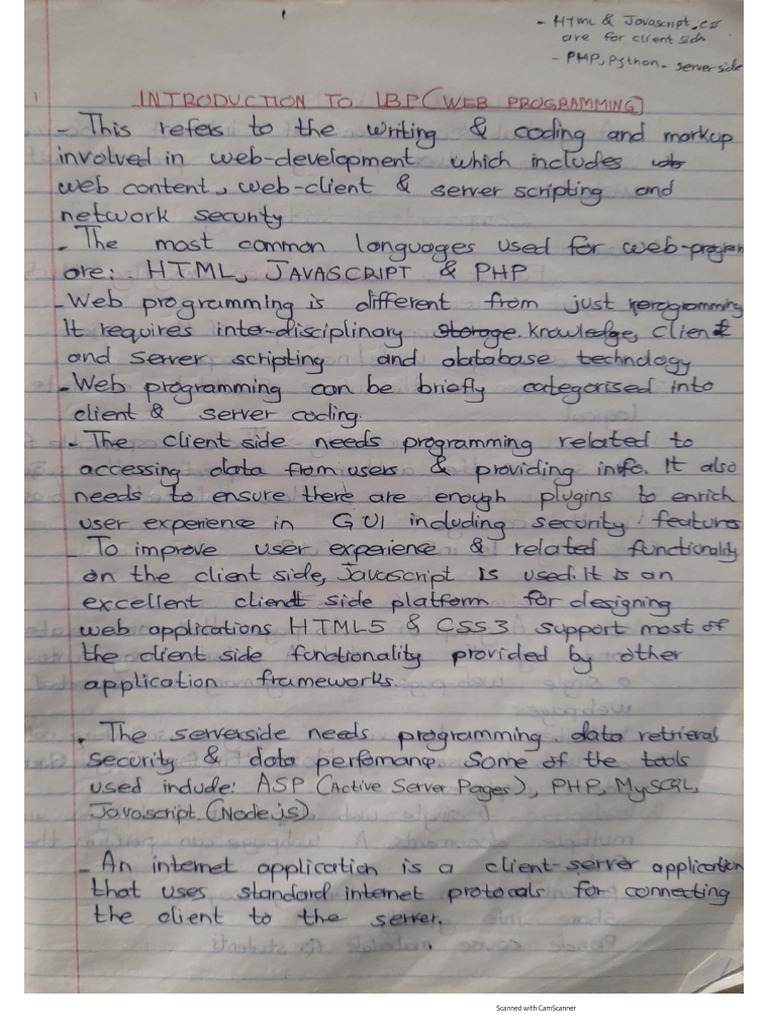 - HTML & Javascript, css
are for client side
- PHP, Python - server side
INTRODUCTION TO IBP (WEB PROGRAMMING)
- This refers to the writing & coding and markup
involved in web-development which includes
web content, web-client & server scripting and
network security
- The most common languages used for web-program
are: HTML, JAVASCRIPT & PHP
- Web programming is different from just programming
It requires inter-disciplinary storage knowledge, client
and server scripting and database technology
- Web programming can be briefly categorised into
client & server coding.
- The client side needs programming related to
accessing data from users & providing info. It also
needs to ensure there are enough plugins to enrich
user experience in GUI including security features
- To improve user experience & related functionality
on the client side, Javascript is used. It is an
excellent client side platform for designing
web applications HTML5 & CSS3 support most of
the client side functionality provided by other
application frameworks.
. The serverside needs programming data retrieval
security & data perfomanc. Some of the tools
used include: ASP (Active Server Pages), PHP, MySQL,
Javascript (Node.js)
- An internet application is a client-server application
that uses standard internet protocals for connecting
the client to the server.
Scanned with CamScanner